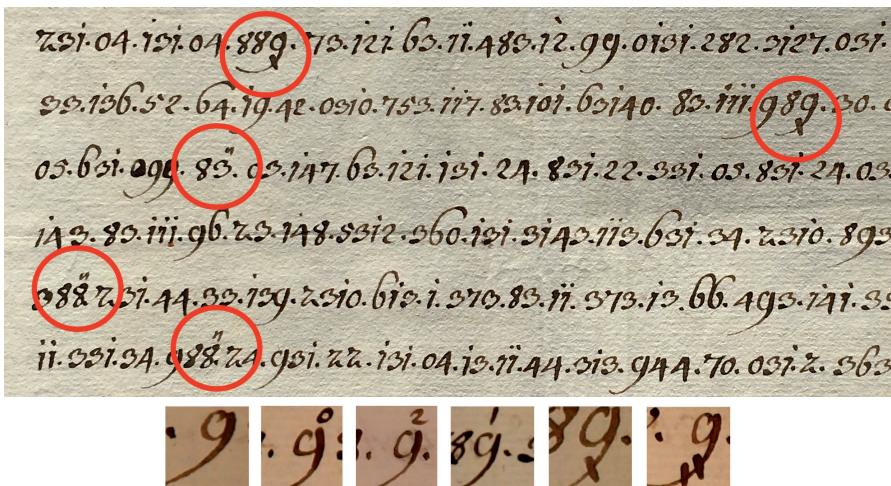 231.04.131.04.889.73.121.63.11.483.12.99.0131.282.3127.031.
33.136.52.64.19.42.0310.753.117.83.101.63140. 83.111.989.30.
05.631. 83̈.03.147.63.121.131.24.831.22.331.05.831.24.03
143.83.111.96.23.148.5312.360.131.3143.113.631.34.2310.893
388̈231.44.33.139.2310.613.1.373.83.11.373.13.66.493.141.33
11.331.34.988̈.24.931.22.131.04.13.11.44.313.944.70.031.2.363
.9 .9⁰ 9². 89¹. 89. .9.